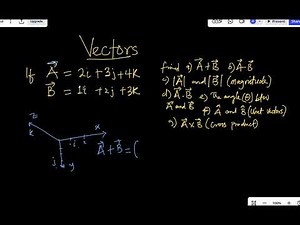 Vectors
If A⃗ = 2i + 3j + 4k
B⃗ = 1i + 2j + 3k
find a) A⃗ + B⃗ b) A⃗ - B⃗
c) |A⃗| and |B⃗| (magnitude)
d) A⃗ . B⃗ e) The angle (θ) btw
A⃗ and B⃗ f) Â and B̂ (Unit vectors)
g) A⃗ x B⃗ (cross product)
z
k
i
x
j
y
A⃗ + B⃗ = (